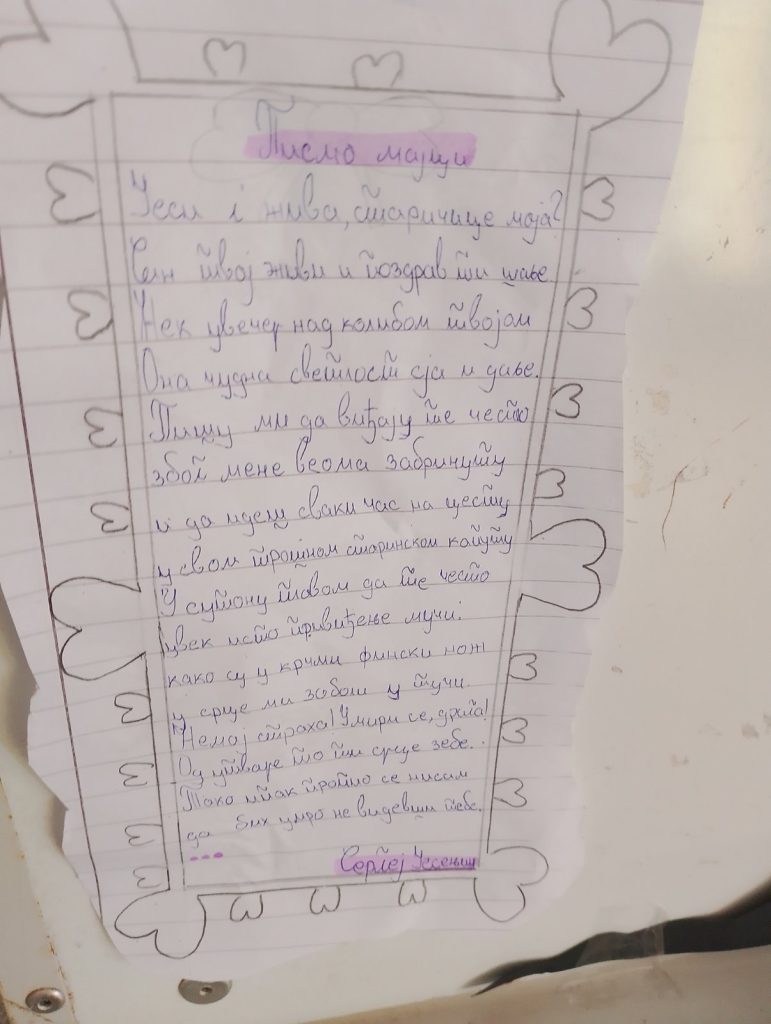 Писмо мајци
Јеси л жива, старичице моја?
Син твој живи и поздрав ти шаље.
Нек увечер над колибом твојом
Она чудна светлост сја и даље.
Пишу ми да виђају те често
због мене веома забринуту
и да идеш сваки час на цесту
у свом трошном старинском капуту
У сутону плавом да те често
увек исто привиђење мучи:
како су у крчми фински нож
у срце ми заболи у тучи.
Немај страха! Умири се, драга!
Од утваре то ти срце зебе..
Тако ипак пропио се нисам
да бих умро не видевши тебе.
...
Сергеј Јесењин